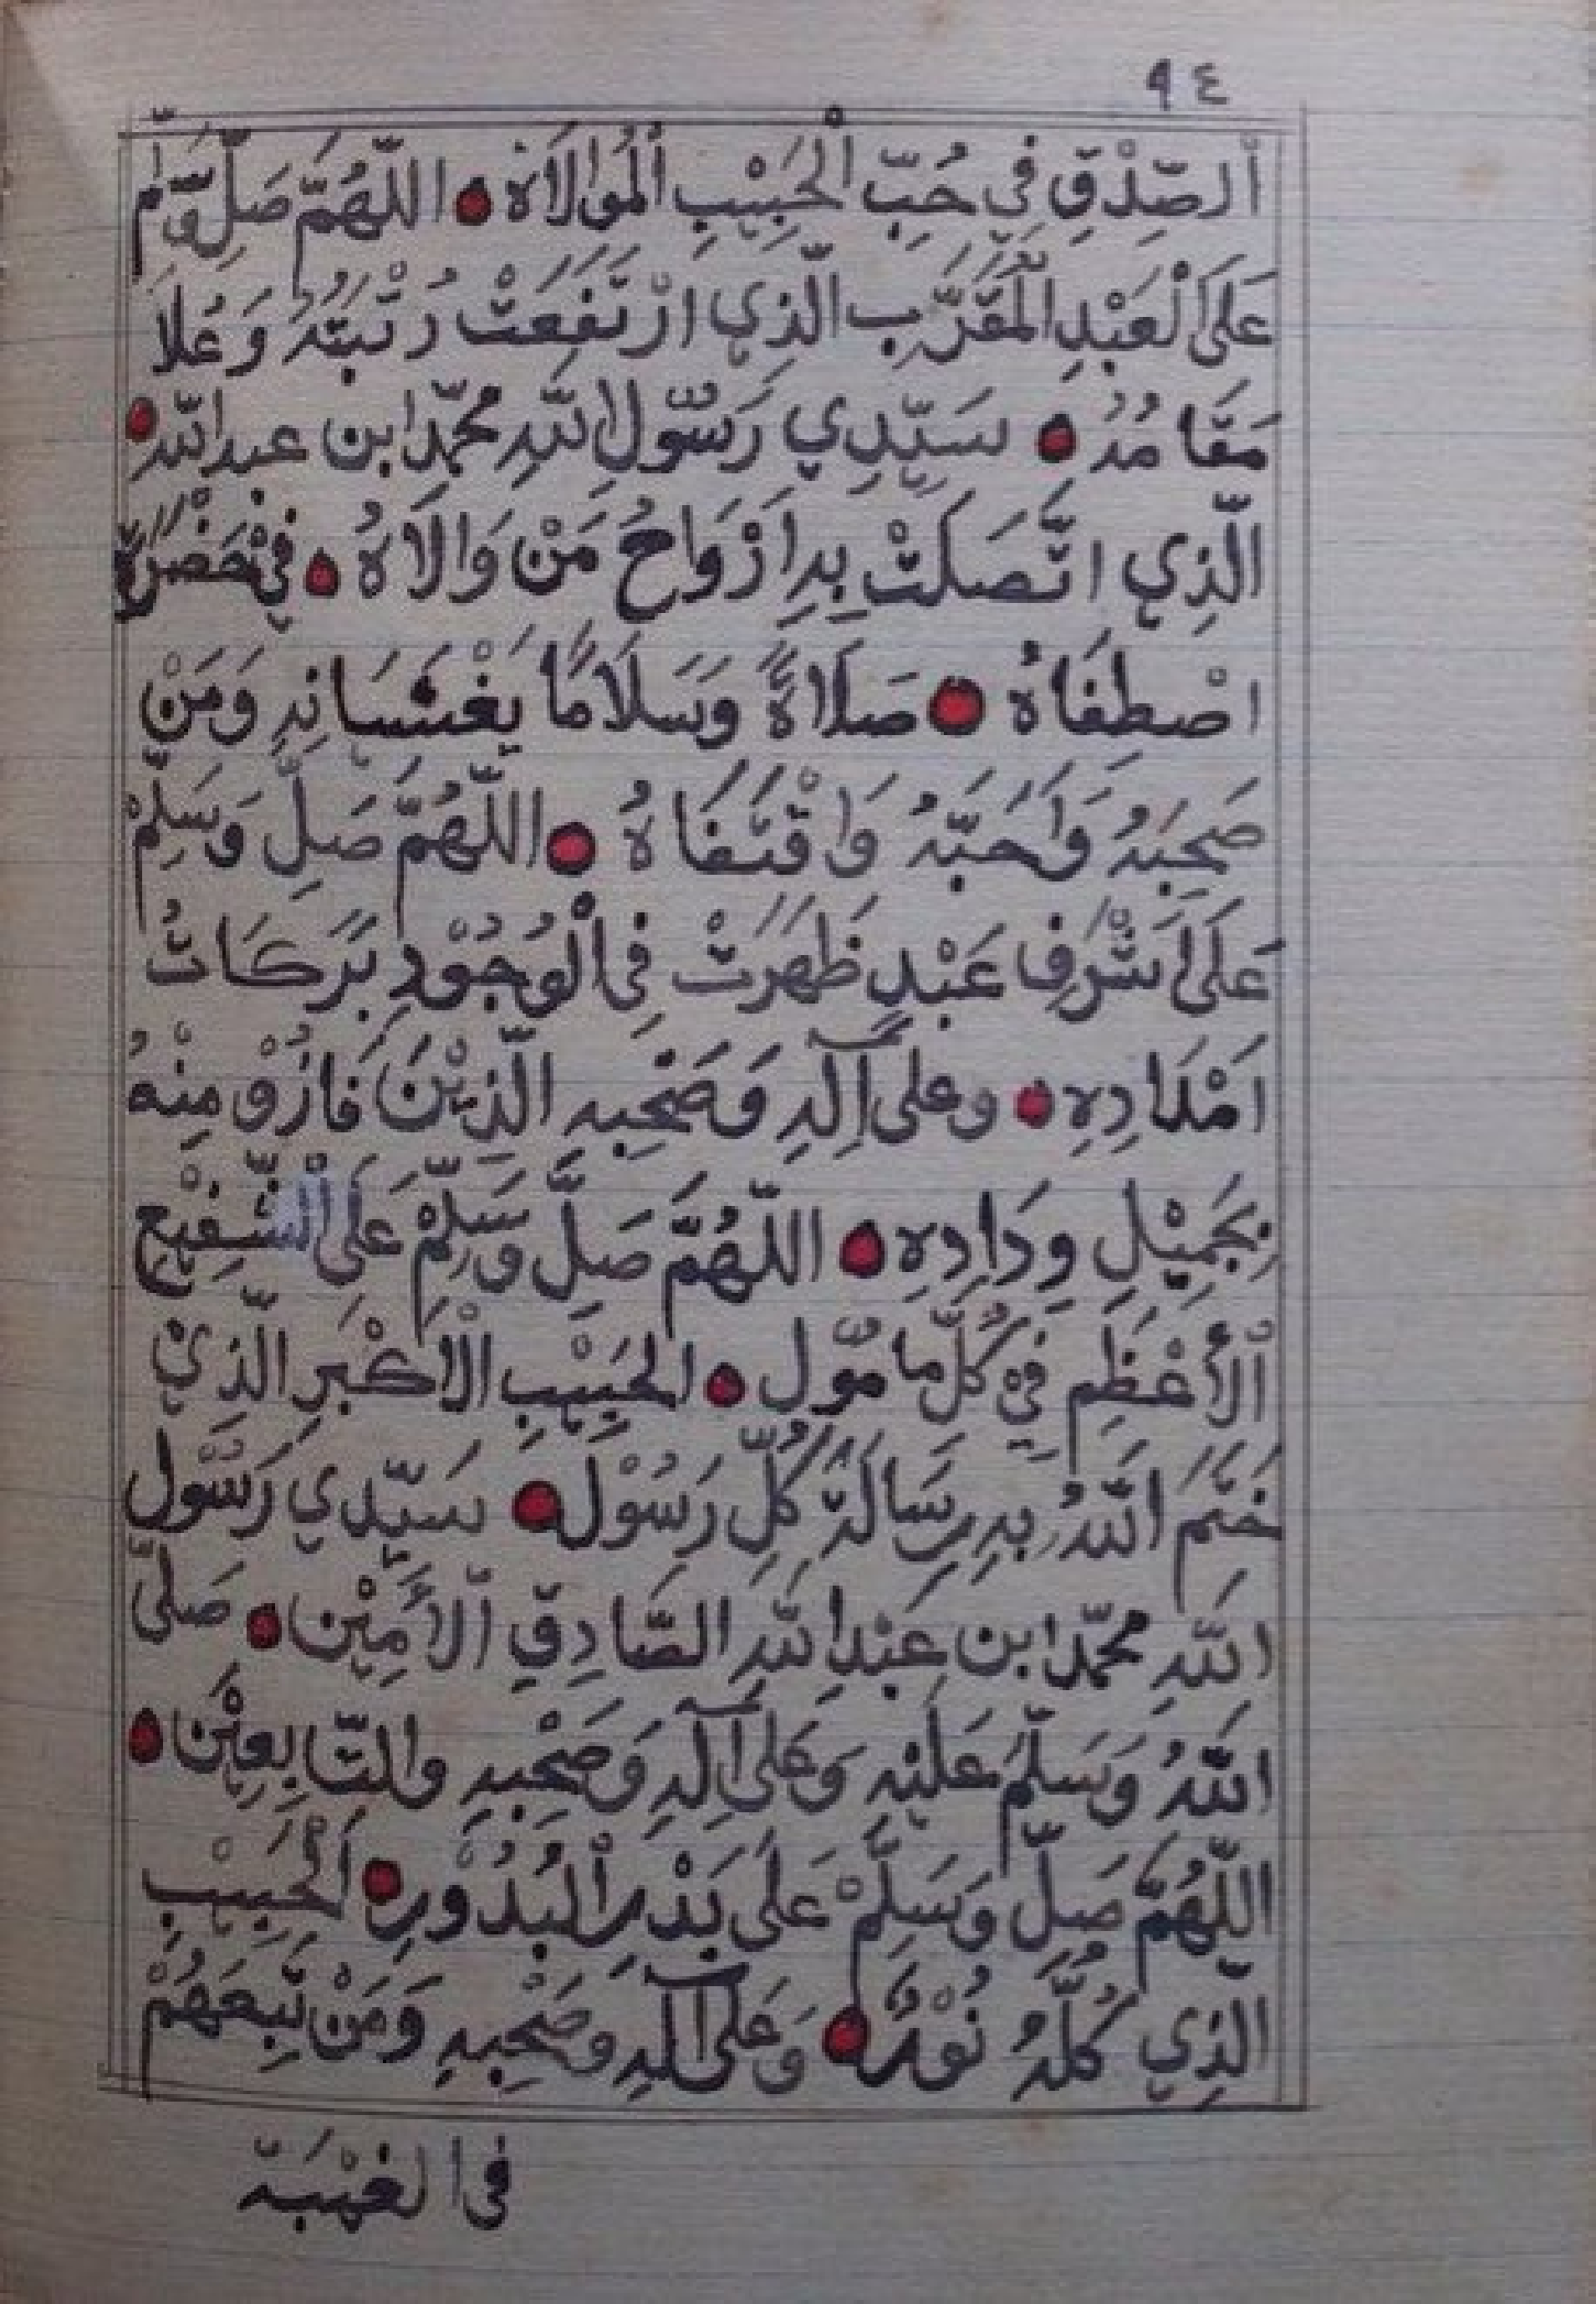 ٩٤
اَلصِّدْقِ فِي حُبِّ الْحَبِيْبِ اَلْمُوَالَاةْ • اللّهُمَّ صَلِّ وَسَلِّمْ
عَلَى الْعَبْدِ الْمُقَرَّبِ الَّذِي ارْتَفَعَتْ رُتْبَتُهُ وَعُلَا
مَقَامُهُ • سَيِّدِي رَسُوْلِ اللّٰهِ محمّد ابن عبد اللّٰه •
الَّذِي اتَّصَلَتْ بِهِ اَرْوَاحُ مَنْ وَالَاهُ • فِيْ حَضْرَةِ
اصْطِفَاهُ • صَلَاةً وَسَلَامًا يَغْشَيَانِهِ وَمَنْ
صَحِبَهُ وَاَحَبَّهُ وَاقْتَفَاهُ • اللّهُمَّ صَلِّ وَسَلِّمْ
عَلَى اَشْرَفِ عَبْدٍ ظَهَرَتْ فِى الْوُجُوْدِ بَرَكَاتُ
اَمْدَادِهِ • وعلى آلِهِ وَصَحْبِهِ الَّذِيْنَ فَازُوْ مِنْهُ
بِجَمِيْلِ وِدَادِهِ • اللّهُمَّ صَلِّ وَسَلِّمْ عَلَى الشَّفِيْعِ
اْلأَعْظَمِ فِيْ كُلِّ مامُوْل • الحَبِيْبِ الْاَكْبَرِ الَّذِيْ
خَتَمَ اللّٰهُ بِهِ رِسَالَةَ كُلِّ رَسُوْل • سَيِّدِي رَسُوْل
اللّٰهِ محمّد ابن عَبْدِ اللّٰهِ الصَّادِقِ اْلأَمِيْن • صَلَّى
اللّٰهُ وَسَلَّمَ عَلَيْهِ وَعَلَى آلِهِ وَصَحْبِهِ والتَّابِعِيْن •
اللّهُمَّ صَلِّ وَسَلِّمْ عَلَى بَدْرِ الْبُدُوْرِ • اَلْحَبِيْبِ
الَّذِي كُلُّهُ نُوْرٌ • وَعَلَى آلِهِ وصَحْبِهِ وَمَنْ تَبِعَهُمْ
فى الغَيْبَةِ